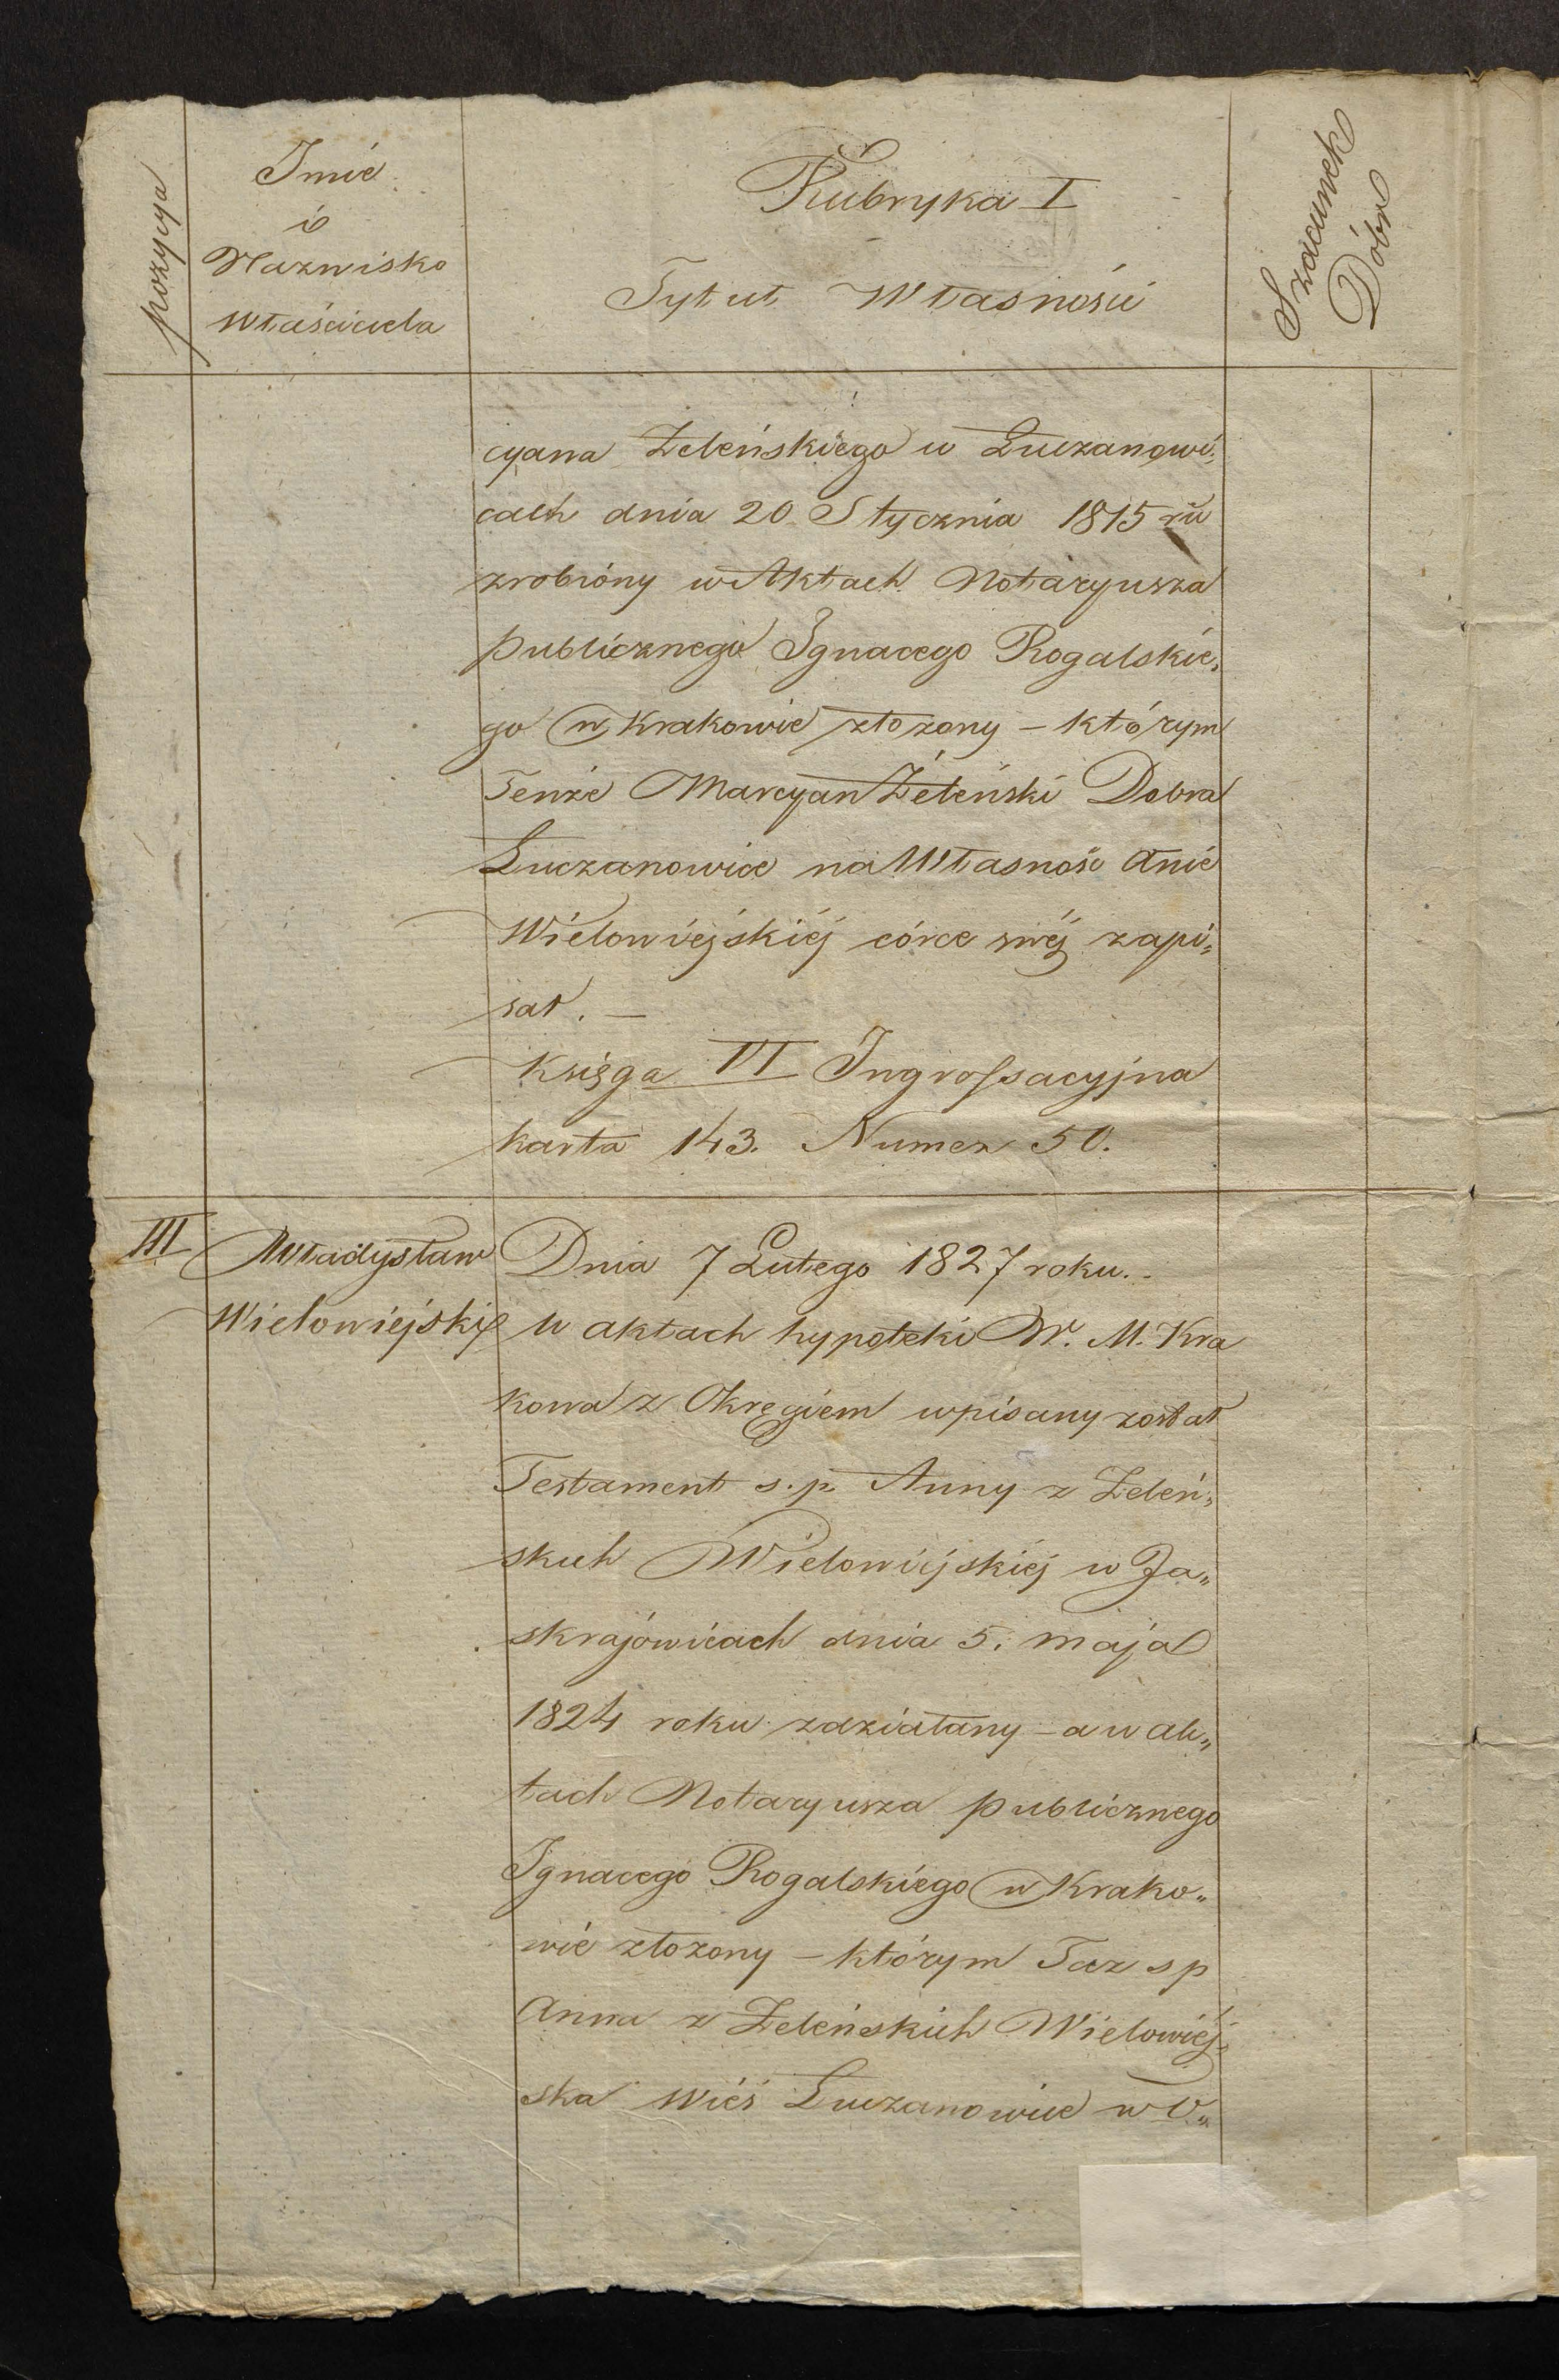 pozycya
Imie
i
Nazwisko
Właściciela
Rubryka I
Tytuł Własności
Szacunek
Dóbr
cyana Żeleńskiego w Łuczanowi„
cach dnia 20 Stycznia 1815 ru
zrobióny w Aktach Notaryusza
publicznego Ignacego Rogalskie„
go w Krakowie złozony – którym
Tenże Marcyan Żeleński Dobra
Łuczanowice na Własność Anie
Wielowiejskiéj córce swéj zapi„
sał. —
Księga VI Ingrossacyjna
karta 143. Numer 50.
III
Władysław
Wielowiejski
Dnia 7 Lutego 1827 roku.
w aktach hypoteki W. M. Kra
kowa z Okręgiem wpisany został
Testament s.p. Anny z Żeleń„
skich Wielowiejskiéj w Ja„
skrajowicach dnia 5. maja
1824 roku zdziałany – a w ak„
tach Notaryusza publicznego
Ignacego Rogalskiego w Krako„
wie złozony – którym Taz s p
Anna z Żeleńskich Wielowiéj„
ska Wieś Łuczanowice w O„